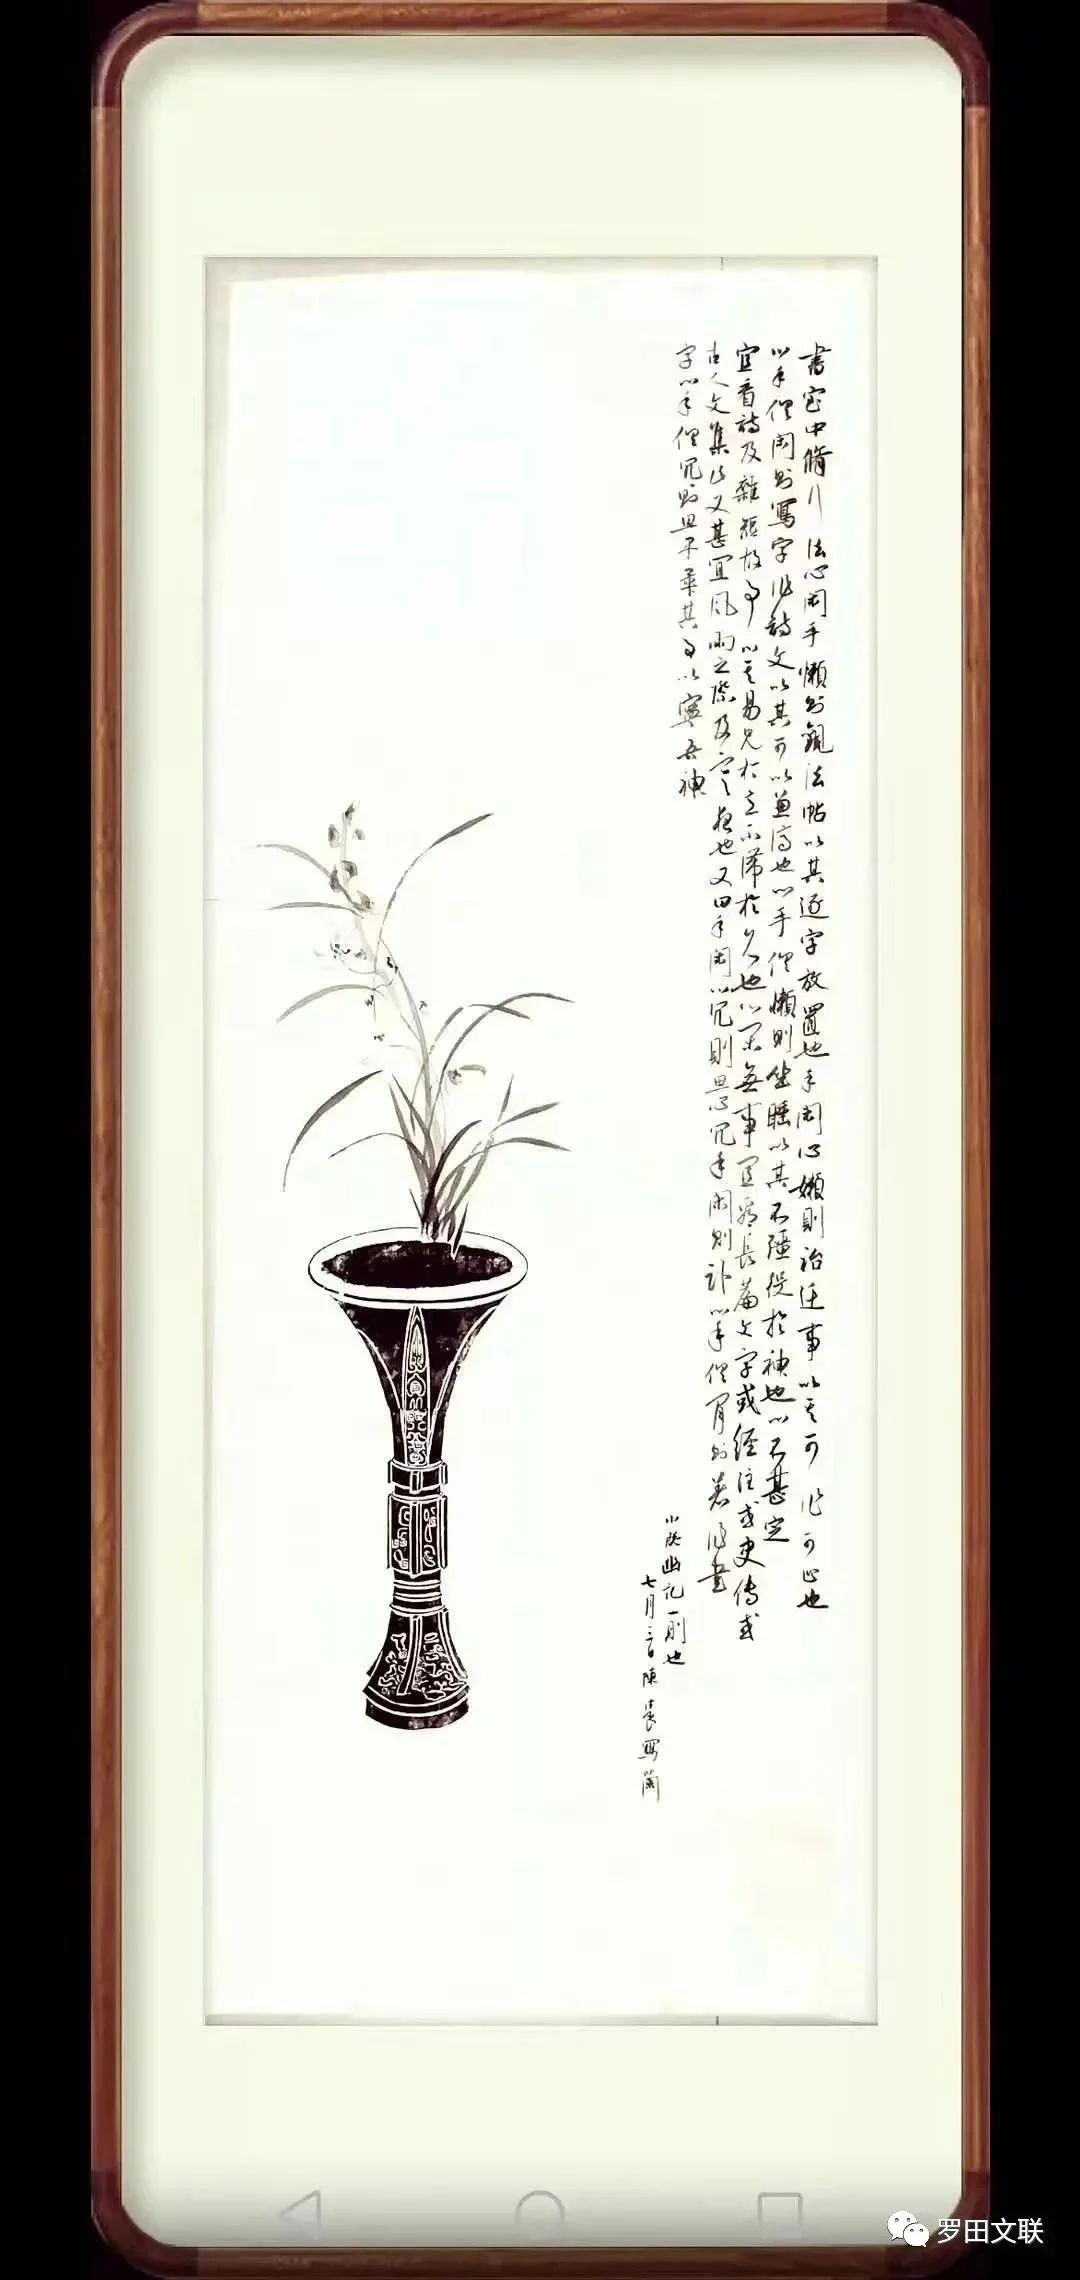 書室中脩行法心閑手懶則觀法帖以其逐字放置也手閑心懶則治迂事以其可作可止也
心手俱閑則寫字作詩文以其可以兼濟也心手俱懶則坐睡以其不彊役於神也心不甚定
宜看詩及雜短故事以其易見於意不滯於久也心閑無事宜看長篇文字或經注或史傳或
古人文集此又甚宜風雨之際及寒夜也又曰手閑心冗則思心冗手閑則卧心手俱閑則著作書
字心手俱冗則思早畢其事以寧吾神
小窓幽記一則也
七月三日陳晨寫蘭
罗田文联